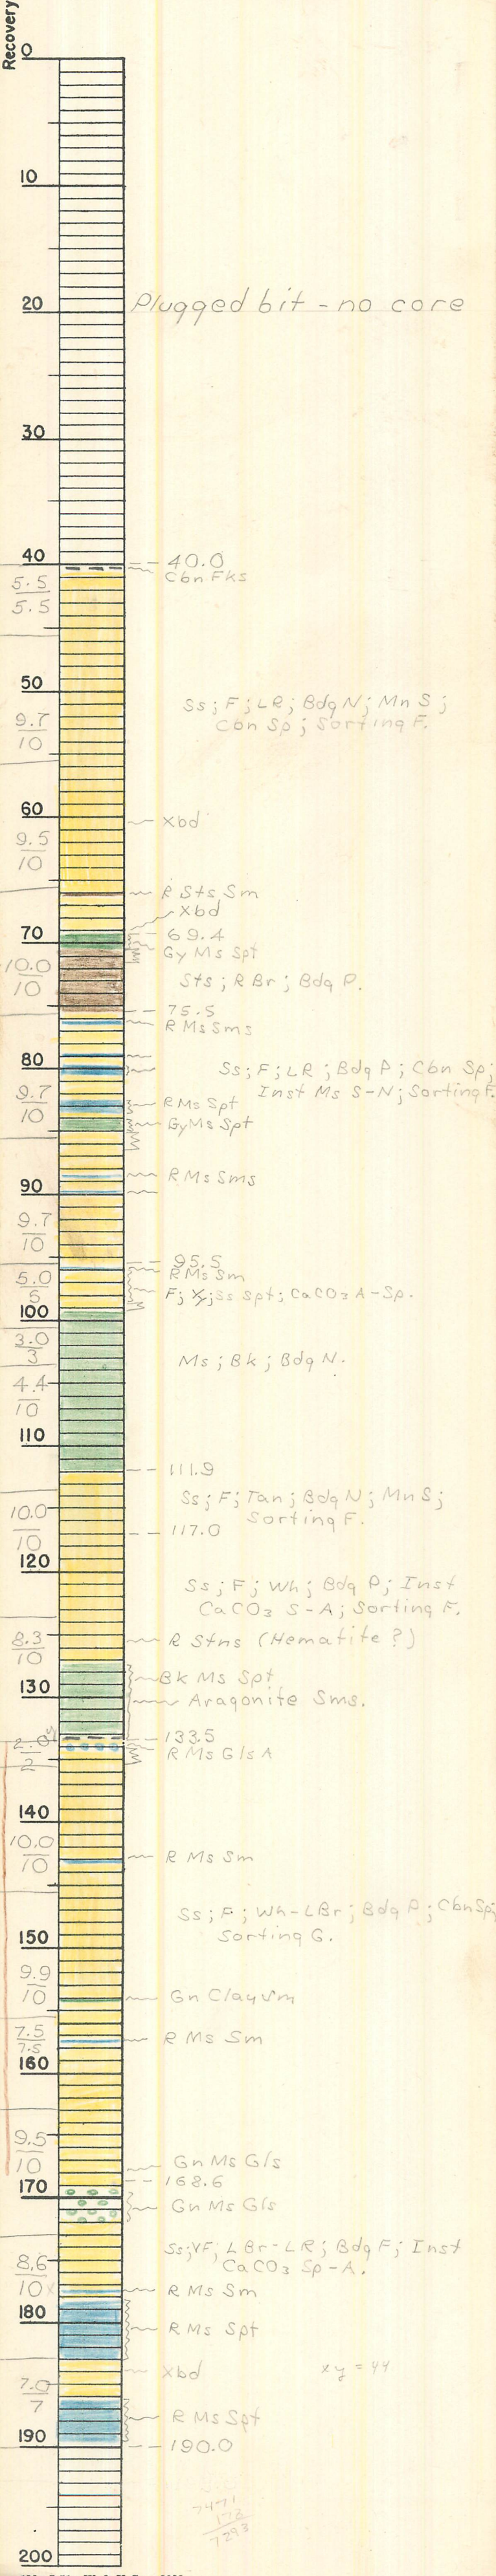 Recovery
0
10
20
Plugged bit - no core
30
40
40.0
Cbn Fks
5.5
5.5
50
Ss; F; LR; Bdg N; Mn S;
Cbn Sp; Sorting F.
9.7
10
60
Xbd
9.5
10
R Sts Sm
Xbd
70
69.4
Gy Ms Spt
10.0
10
Sts; R Br; Bdg P.
75.5
R Ms Sms
80
Ss; F; LR; Bdg P; Cbn Sp;
Inst Ms S-N; Sorting F.
9.7
10
R Ms Spt
Gy Ms Spt
R Ms Sms
90
9.7
10
95.5
R Ms Sm
5.0
5
F; Ss Spt; CaCO3 A-Sp.
100
3.0
3
Ms; Bk; Bdg N.
4.4
10
110
111.9
Ss; F; Tan; Bdg N; Mn S;
Sorting F.
10.0
10
117.0
120
Ss; F; Wh; Bdg P; Inst
CaCO3 S-A; Sorting F.
8.3
10
R Stns (Hematite?)
Bk Ms Spt
130
Aragonite Sms.
133.5
2.0
2
R Ms Gls A
140
10.0
10
R Ms Sm
Ss; F; Wh-LBr; Bdg P; Cbn Sp;
Sorting G.
150
9.9
10
Gn Clay Sm
7.5
7.5
R Ms Sm
160
9.5
10
Gn Ms Gls
168.6
170
Gn Ms Gls
Ss; VF; LBr-LR; Bdg F; Inst
CaCO3 Sp-A.
8.6
10
R Ms Sm
180
R Ms Spt
Xbd
xy = 44
7.0
7
R Ms Spt
190
190.0
7471
178
7293
200